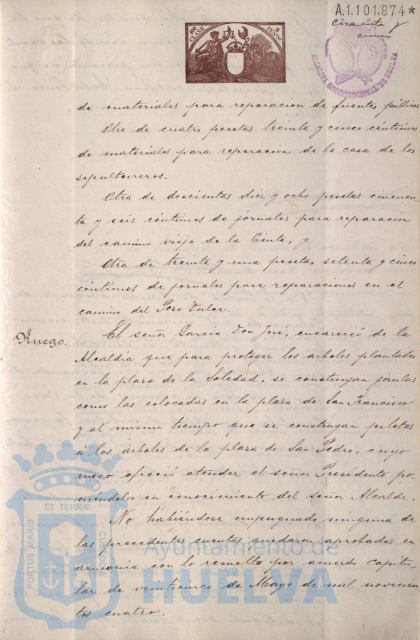 A.1.101.874*
cincuenta y
cinco
de materiales para reparacion de fuentes públicas
Otra de cuatro pesetas treinta y cinco céntimos
de materiales para reparacion de la casa de los
sepultureros.
Otra de doscientas diez y ocho pesetas cincuen
ta y seis céntimos de jornales para reparación
del camino viejo de la Cinta, y
Otra de treinta y una pesetas, setenta y cinco
céntimos de jornales para reparaciones en el
camino del Pozo Dulce.
Ruego.
El señor García Don José, encareció de la
Alcaldía que para proteger los árboles plantados
en la plaza de la Soledad, se construyan jaulas
como las colocadas en la plaza de San Francisco
y al mismo tiempo que se construyan piletas
a los árboles de la plaza de San Pedro, cuyo
ruego ofreció atender el señor Presidente po
niéndolo en conocimiento del señor Alcalde.
No habiéndose impugnado ninguna de
las precedentes cuentas quedaron aprobadas en
armonía con lo resuelto por acuerdo capitu
lar de veinticinco de Mayo de mil novecien
tos cuatro.
Ayuntamiento de
HUELVA
PORTUS MARIS
ET TERRAE